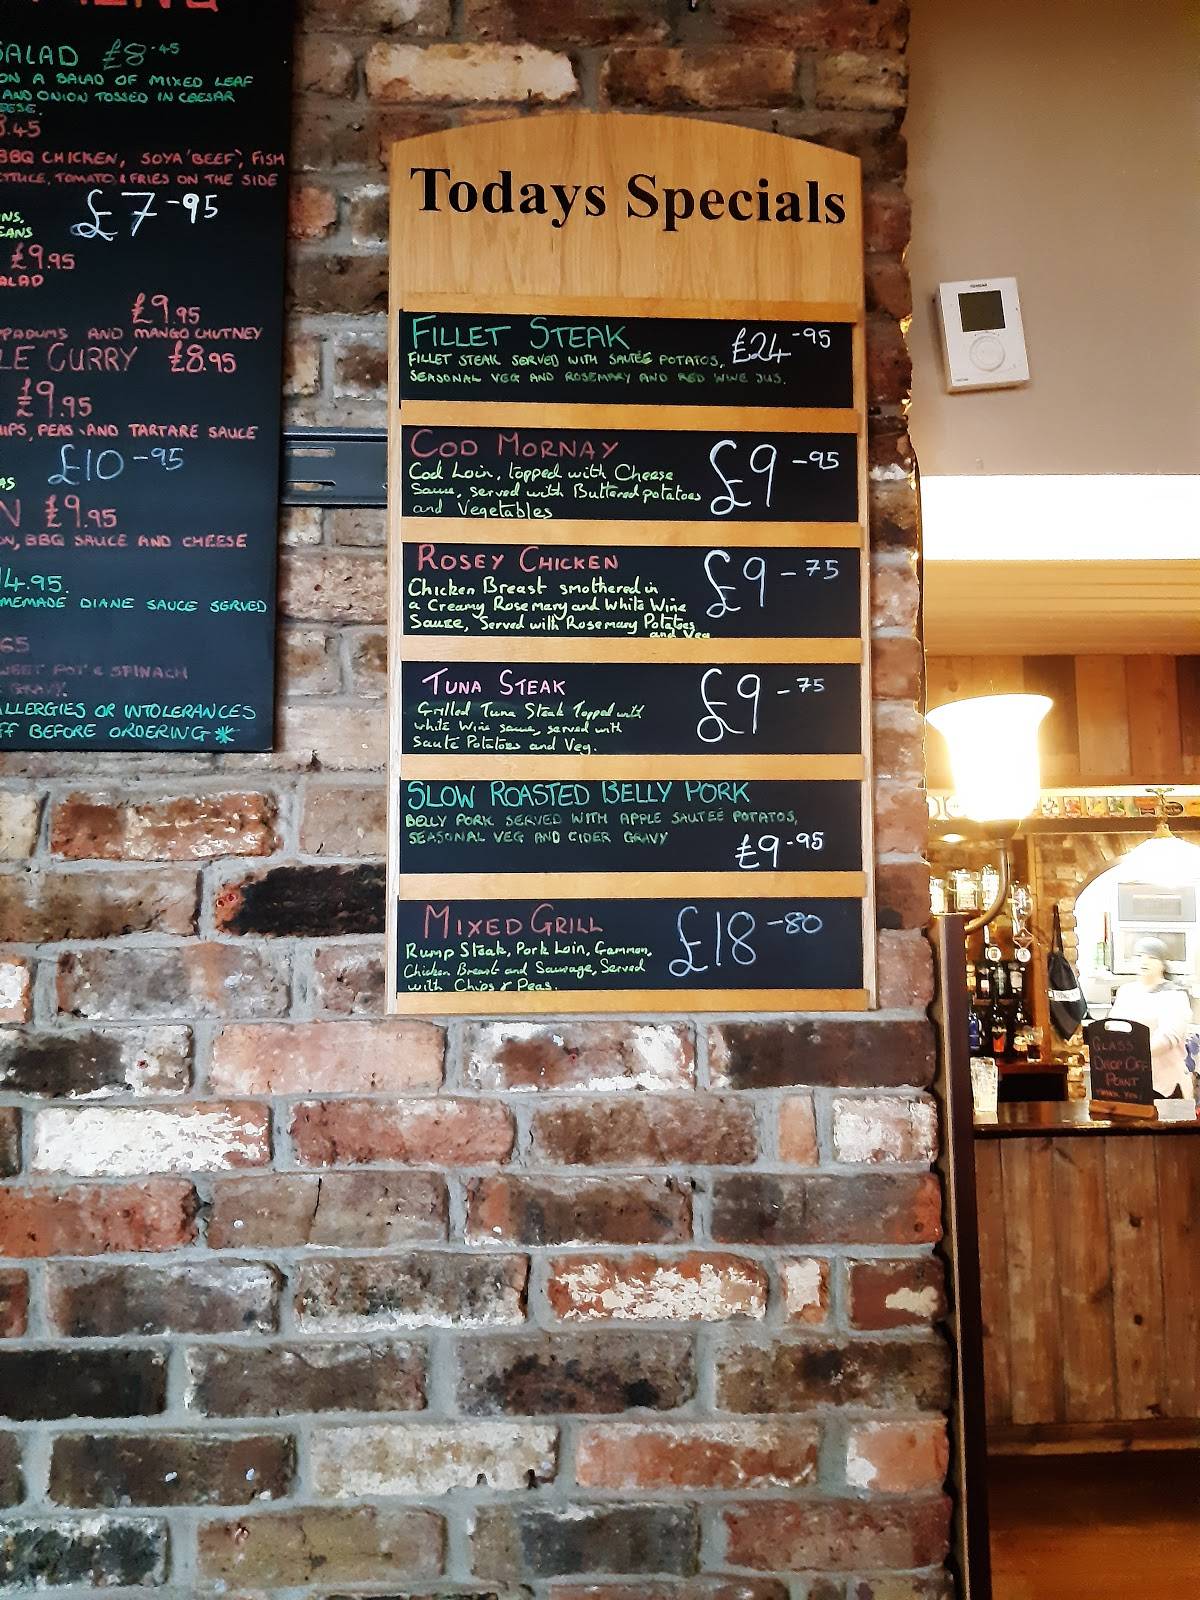 SALAD £8.45
ON A SALAD OF MIXED LEAF
AND ONION TOSSED IN CAESAR
.45
BBQ CHICKEN, SOYA 'BEEF', FISH
TOMATO & FRIES ON THE SIDE
£7-95
£9.95
£9.95
AND MANGO CHUTNEY
CURRY £8.95
£9.95
PEAS AND TARTARE SAUCE
£10-95
£9.95
BBQ SAUCE AND CHEESE
4.95.
DIANE SAUCE SERVED
65
POT & SPINACH
GRAVY.
ALLERGIES OR INTOLERANCES
BEFORE ORDERING *
Todays Specials
FILLET STEAK £24-95
FILLET STEAK SERVED WITH SAUTÉE POTATOS,
SEASONAL VEG AND ROSEMARY AND RED WINE JUS.
COD MORNAY £9-95
Cod Loin, topped with Cheese
Sauce, served with Buttered potatoes
and Vegetables
ROSEY CHICKEN £9-75
Chicken Breast smothered in
a Creamy Rosemary and White Wine
Sauce, Served with Rosemary Potatoes
and Veg
TUNA STEAK £9-75
Grilled Tuna Steak Topped with
white Wine sauce, served with
Sauté Potatoes and Veg.
SLOW ROASTED BELLY PORK
BELLY PORK SERVED WITH APPLE SAUTEÉ POTATOS,
SEASONAL VEG AND CIDER GRAVY
£9-95
MIXED GRILL £18-80
Rump Steak, Pork Loin, Gammon,
Chicken Breast and Sausage, Served
with Chips & Peas.
GLASS
DROP OFF
POINT
THANK YOU!